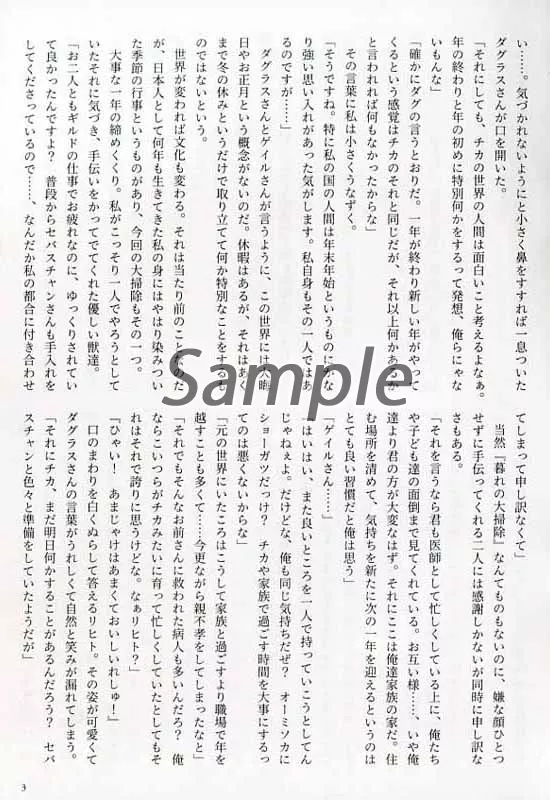 い……。気づかれないようにと小さく鼻をすすれば一息ついた
ダグラスさんが口を開いた。
「それにしても、チカの世界の人間は面白いこと考えるよなぁ。
年の終わりと年の初めに特別何かをするって発想、俺らにゃな
いもんな」
「確かにダグの言うとおりだ。一年が終わり新しい年がやって
くるという感覚はチカのそれと同じだが、それ以上何かあるか
と言われれば何もなかったからな」
その言葉に私は小さくうなずく。
「そうですね。特に私の国の人間は年末年始というものにかな
り強い思い入れがあった気がします。私自身もその一人ではあ
るのですが……」
ダグラスさんとゲイルさんが言うように、この世界には大晦
日やお正月という概念がないのだ。休暇はあるが、それはあく
まで冬の休みというだけで取り立てて何か特別なことをするも
のではないという。
世界が変われば文化も変わる。それは当たり前のことなのだ
が、日本人として何年も生きてきた私の身にはやはり染みつい
た季節の行事というものがあり、今回の大掃除もその一つ。
大事な一年の締めくくり。私がこっそり一人でやろうとして
いたそれに気づき、手伝いをかってでてくれた優しい獣達。
「お二人ともギルドの仕事でお疲れなのに、ゆっくりされてい
て良かったんですよ? 普段からセバスチャンさんも手入れを
してくださっているので……、なんだか私の都合に付き合わせ
てしまって申し訳なくて」
当然『暮れの大掃除』なんてものもないのに、嫌な顔ひとつ
せずに手伝ってくれる二人には感謝しかないが同時に申し訳な
さもある。
「それを言うなら君も医師として忙しくしている上に、俺たち
や子ども達の面倒まで見てくれている。お互い様……、いや俺
達より君の方が大変なはず。それにここは俺達家族の家だ。住
む場所を清めて、気持ちを新たに次の一年を迎えるというのは
とても良い習慣だと俺は思う」
「ゲイルさん……」
「はいはい、また良いところを一人で持っていこうとしてん
じゃねぇよ。だけどな、俺も同じ気持ちだぜ? オーミソカに
ショーガツだっけ? チカや家族で過ごす時間を大事にするっ
てのは悪くないからな」
「元の世界にいたころはこうして家族と過ごすより職場で年を
越すことも多くて……今更ながら親不孝をしてしまったなと」
「それでもそんなお前さんに救われた病人も多いんだろ? 俺
ならこいつらがチカみたいに育って忙しくしていたとしてもそ
れはそれで誇りに思うけどな。なぁリヒト?」
「ひゃい! あまじゃけはあまくておいしいれしゅ!」
口のまわりを白くぬらして答えるリヒト。その姿が可愛くて
ダグラスさんの言葉がうれしくて自然と笑みが漏れてしまう。
「それにチカ、まだ明日何かすることがあるんだろう? セバ
スチャンと色々と準備をしていたようだが」
3
Sample